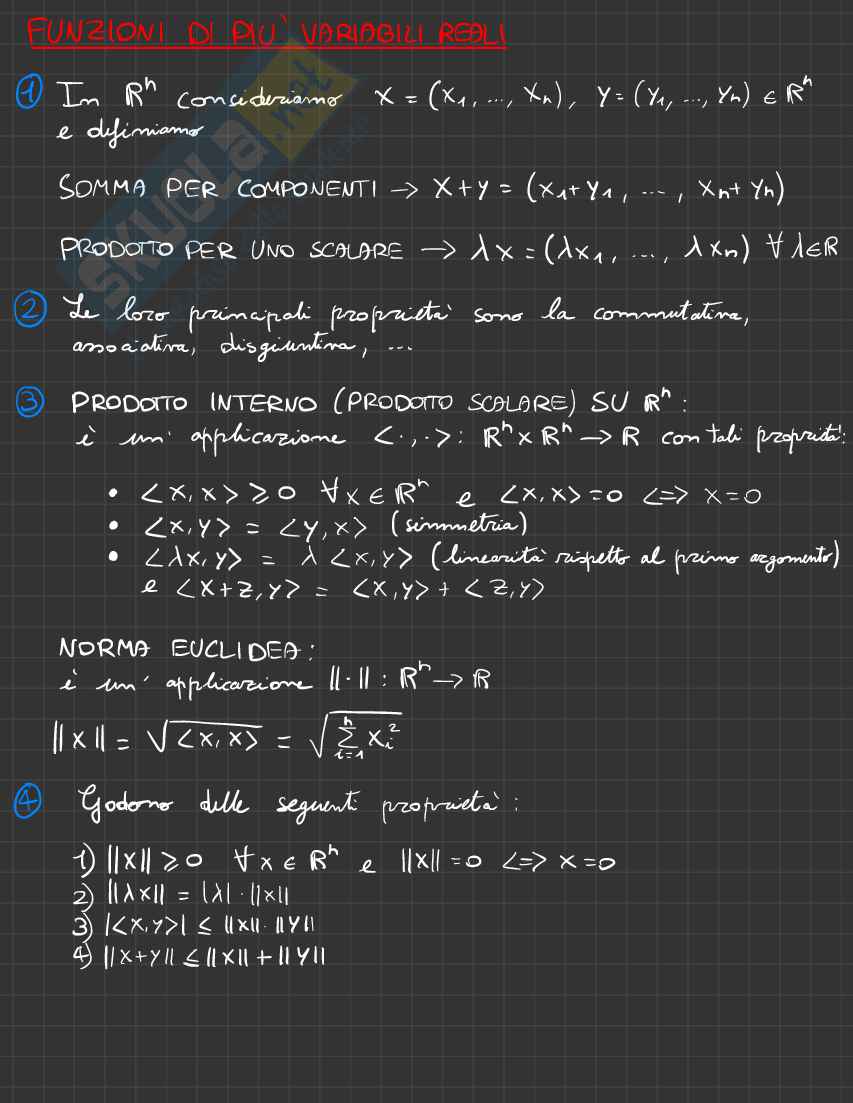 FUNZIONI DI PIU' VARIABILI REALI
1 In ℝⁿ consideriamo x = (x₁, ..., xₙ), y = (y₁, ..., yₙ) ∈ ℝⁿ
e definiamo
SOMMA PER COMPONENTI → x+y = (x₁+y₁, ..., xₙ+yₙ)
PRODOTTO PER UNO SCALARE → λx = (λx₁, ..., λxₙ) ∀ λ∈ℝ
2 Le loro principali proprietà sono la commutativa,
associativa, disgiuntiva, ...
3 PRODOTTO INTERNO (PRODOTTO SCALARE) SU ℝⁿ:
è un' applicazione <·,·>: ℝⁿ × ℝⁿ → ℝ con tali proprietà:
• <x,x> ≥ 0 ∀x ∈ ℝⁿ e <x,x> = 0 <=> x = 0
• <x,y> = <y,x> (simmetria)
• <λx,y> = λ <x,y> (linearità rispetto al primo argomento)
e <x+z,y> = <x,y> + <z,y>
NORMA EUCLIDEA:
è un' applicazione ||·|| : ℝⁿ → ℝ
||x|| = √<x,x> = √∑ⁿᵢ₌₁ xᵢ²
4 Godono delle seguenti proprietà:
1) ||x|| ≥ 0 ∀x ∈ ℝⁿ e ||x|| = 0 <=> x = 0
2) ||λx|| = |λ|·||x||
3) |<x,y>| ≤ ||x||·||y||
4) ||x+y|| ≤ ||x|| + ||y||
SKUOLA.net